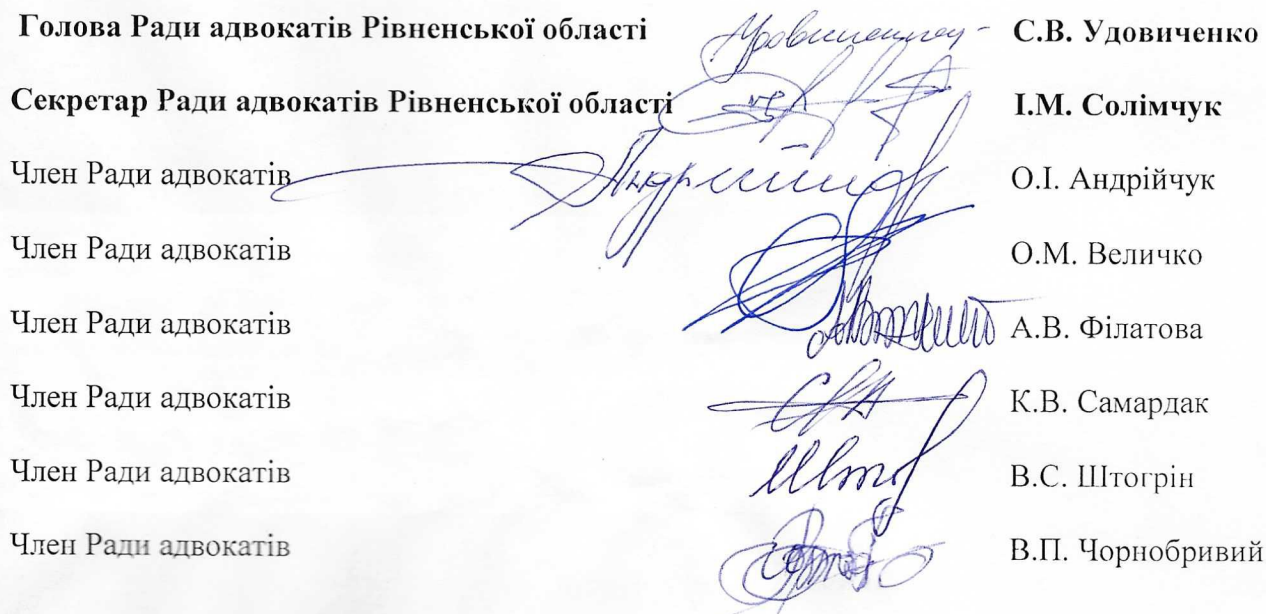 Голова Ради адвокатів Рівненської області С.В. Удовиченко
Секретар Ради адвокатів Рівненської області І.М. Солімчук
Член Ради адвокатів О.І. Андрійчук
Член Ради адвокатів О.М. Величко
Член Ради адвокатів А.В. Філатова
Член Ради адвокатів К.В. Самардак
Член Ради адвокатів В.С. Штогрін
Член Ради адвокатів В.П. Чорнобривий